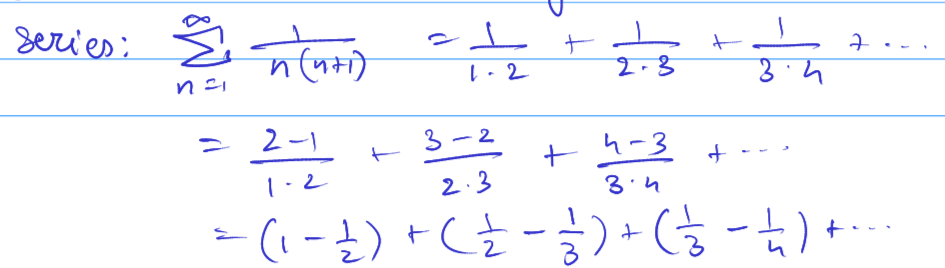 Series: ∑_{n=1}^{∞} 1/(n(n+1)) = 1/(1·2) + 1/(2·3) + 1/(3·4) + ...
= (2-1)/(1·2) + (3-2)/(2·3) + (4-3)/(3·4) + ...
= (1 - 1/2) + (1/2 - 1/3) + (1/3 - 1/4) + ...